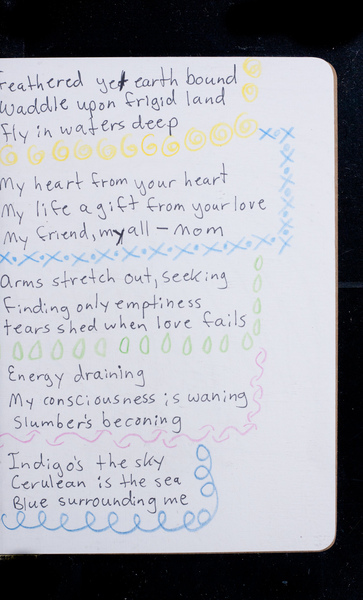 Feathered yet earth bound
Waddle upon frigid land
Fly in waters deep
My heart from your heart
My life a gift from your love
My friend, my all - mom
Arms stretch out, seeking
Finding only emptiness
tears shed when love fails
Energy draining
My consciousness is waning
Slumber's beconing
Indigo's the sky
Cerulean is the sea
Blue surrounding me